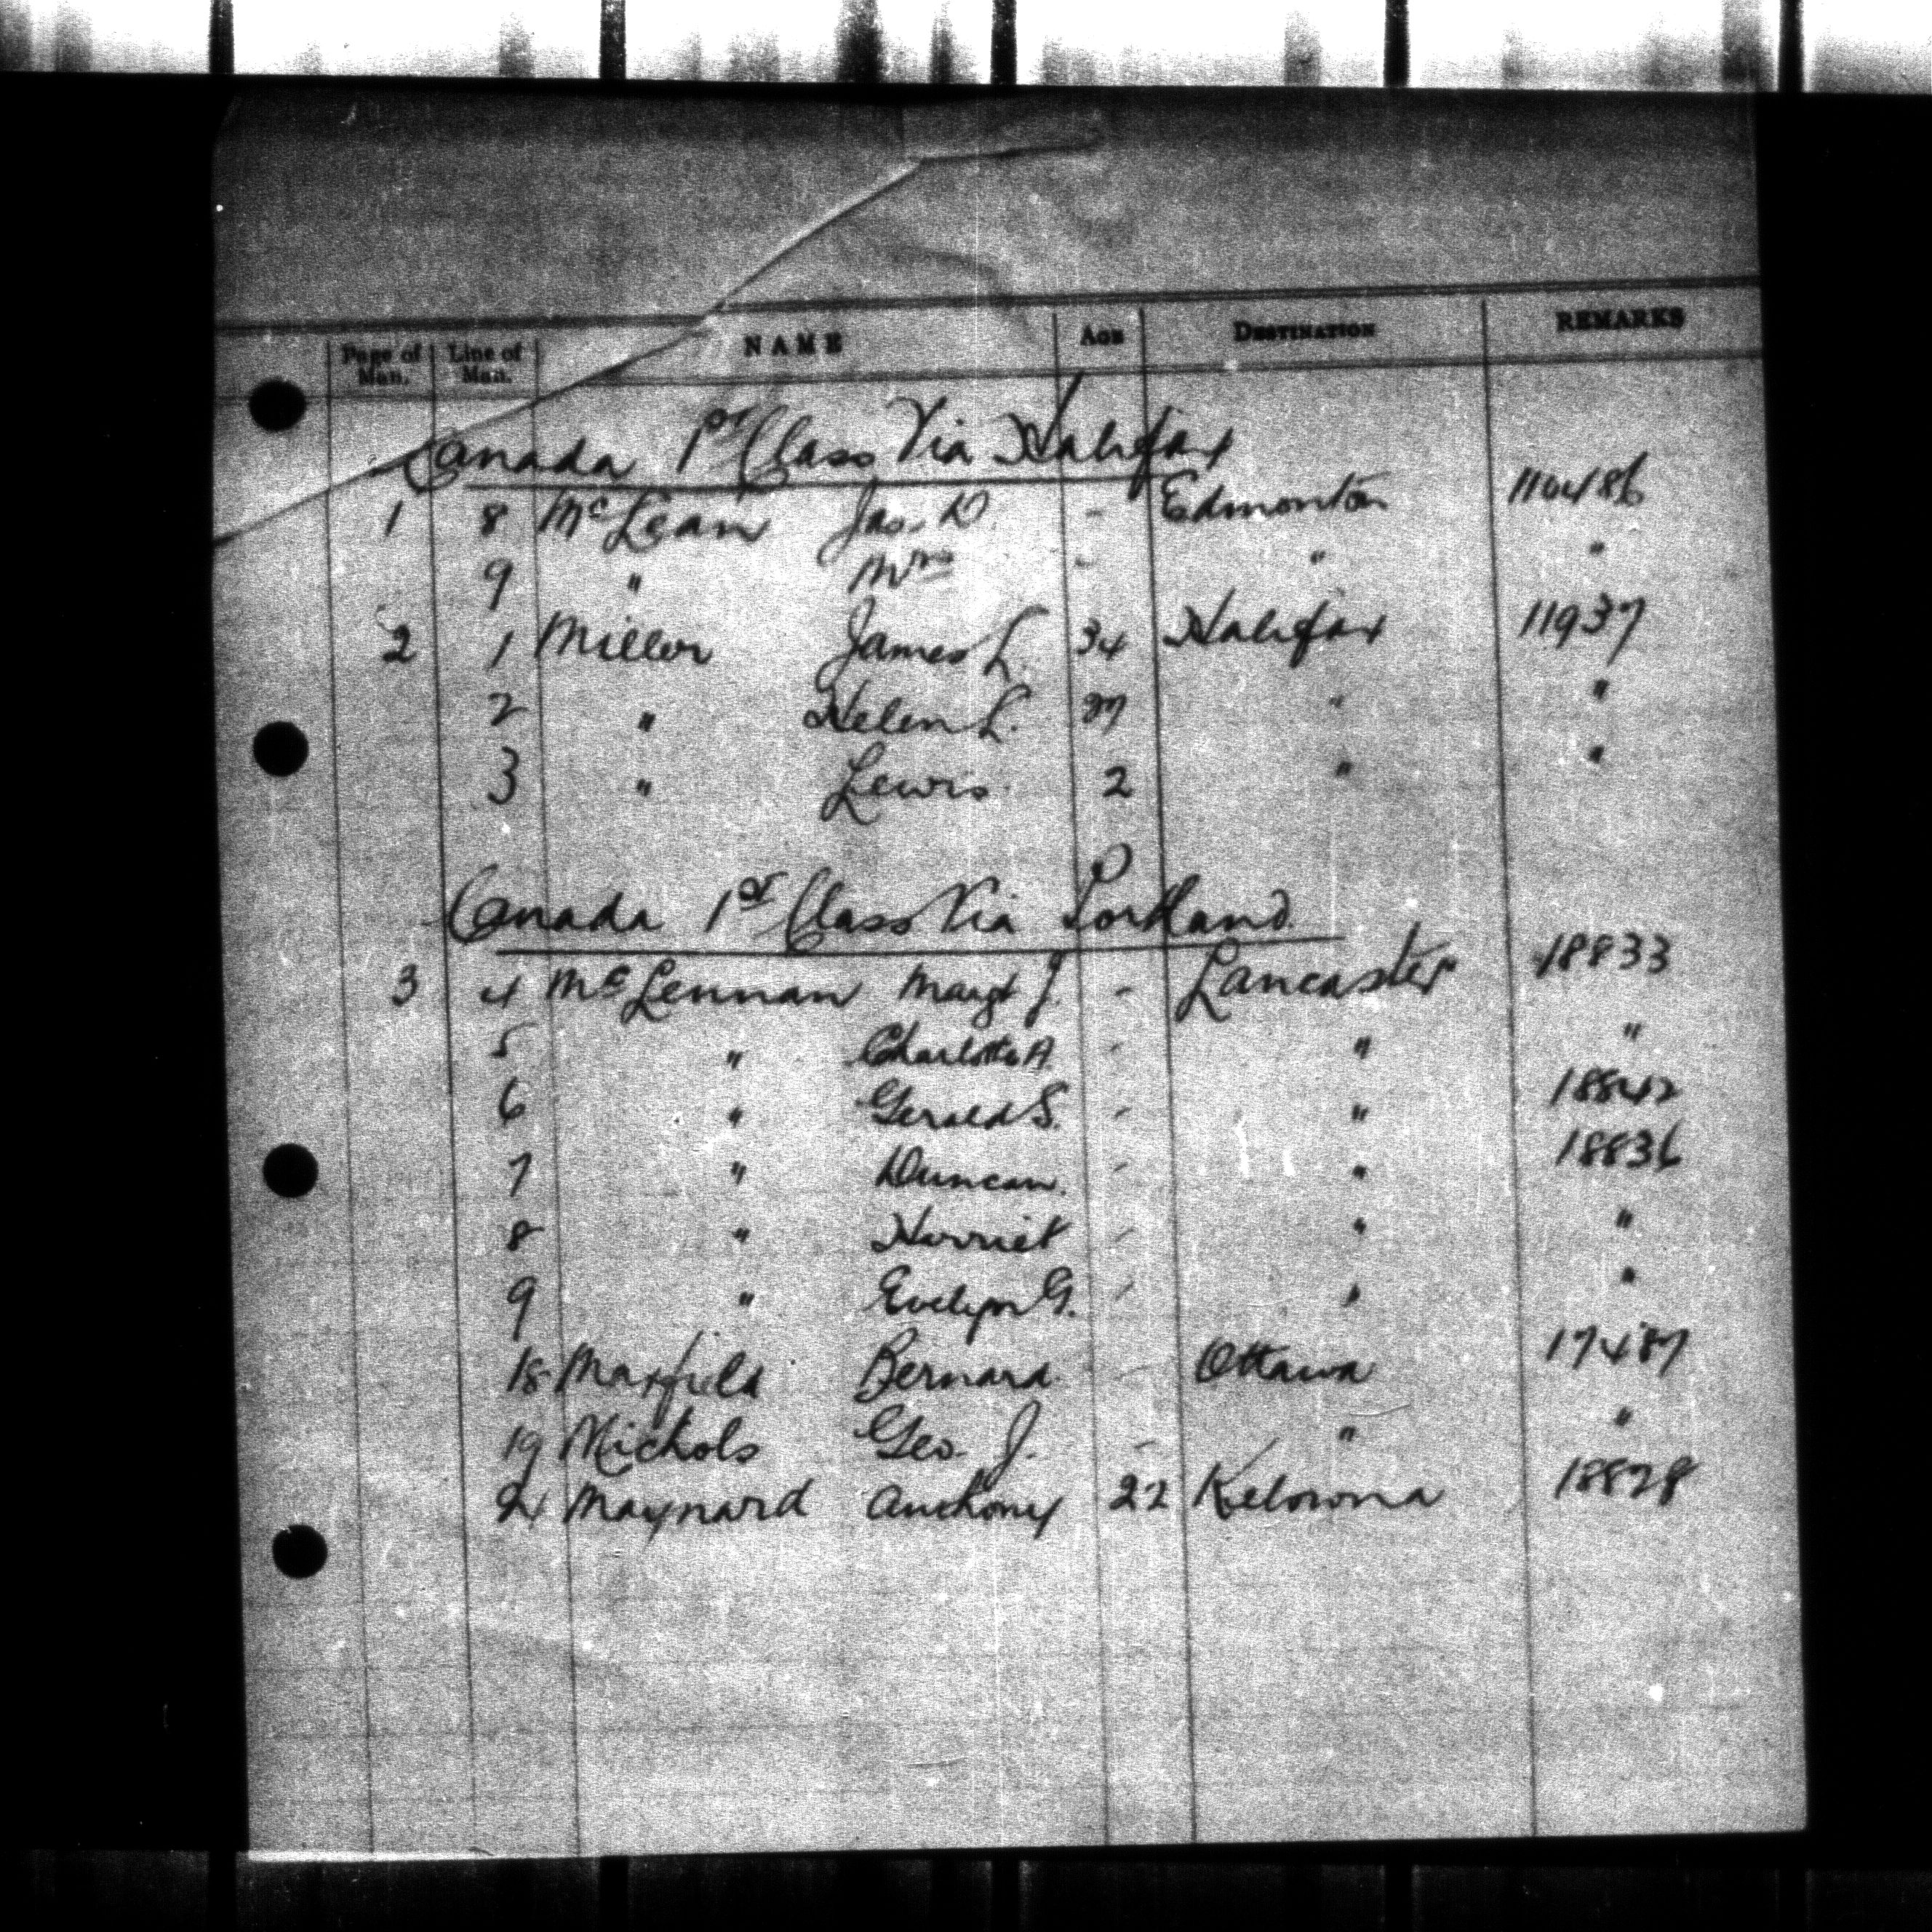 Page of Man. Line of Man. NAME AGE DESTINATION REMARKS
Canada 1st Class Via Halifax
1 8 McLean Jas. D. - Edmonton 110486
9 " Mrs - " "
2 1 Miller James L. 34 Halifax 11937
2 " Helen L. " "
3 " Lewis 2 " "
Canada 1st Class Via Portland
3 4 McLennan Margt J. - Lancaster 18833
5 " Charlotte A. - " "
6 " Gerald S. - " 18842
7 " Duncan. - " 18836
8 " Harriet - " "
9 " Evelyn G. - " "
18 Maxfield Bernard. - Ottawa 17487
19 Michols Geo. J. - " "
Maynard Anthony 22 Kelowna 18828